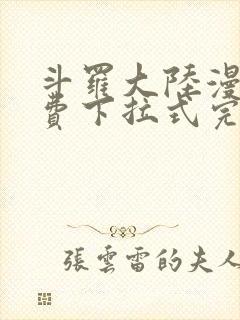 斗羅大陸漫
費下拉式完
張雲雷的夫人